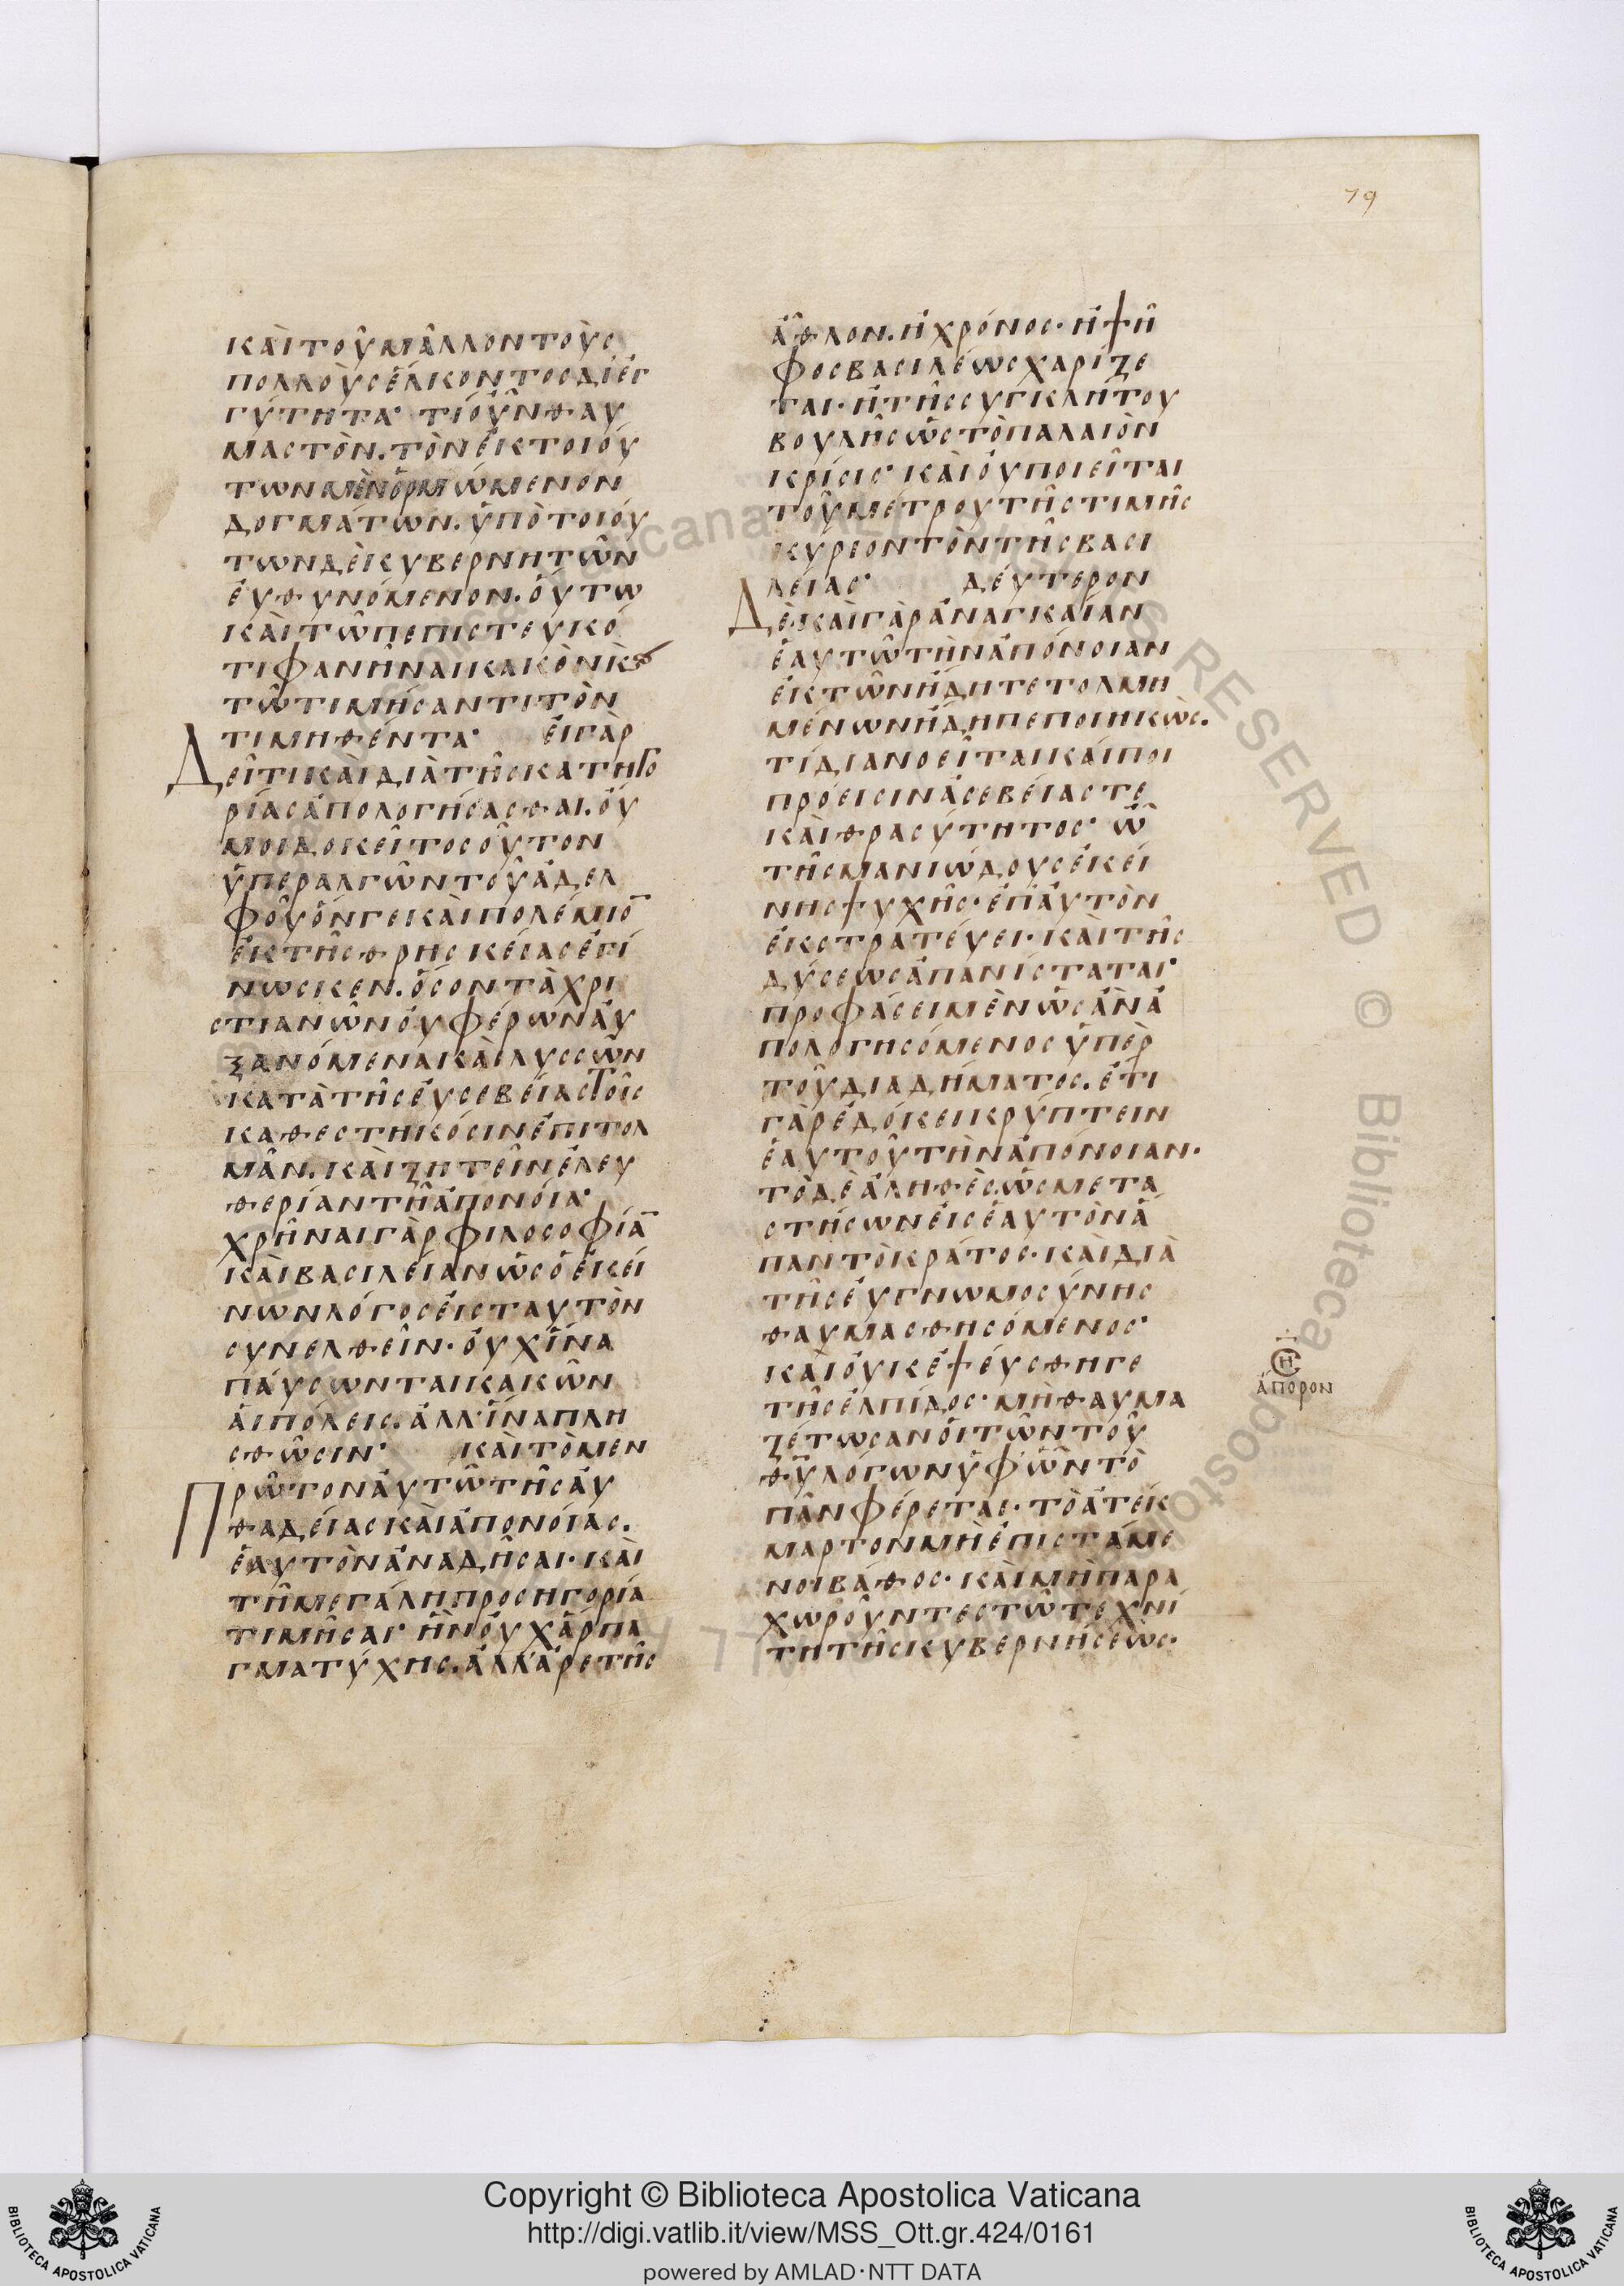 79
κὰι τοῦ μᾶλλον τοὺς
πολλοὺς ἕλκοντος δι ἐς
γύτητα· τί οὖν θαυ
μαστὸν. τὸν ἐκ τοιού
των μὲν ὁρμώμενον
δογμάτων. ὑπὸ τοιού
των δὲ κυβερνητῶν
ἐυθυνόμενον. ὅυτω
κὰι τῶ πεπιστευκό
τι φανῆναι κακὸν κ(αὶ)
τῶ τιμήσαντι τὸν
τιμηθέντα· ἐι γὰρ
Δεῖ τι κὰι διὰ τῆς κατηγο
ρίας ἀπολογήσασθαι. ὄυ
μοι δοκεῖ τοσοῦτον
ὑπεραλγῶν τοῦ ἀδελ
φοῦ ὅν γε κὰι πολέμιο(ν)
ἐκ τῆς θρησκέιας ἐγί
νωσκεν. ὅσον τὰ χρι
στιανῶν ὀυ φέρων ἀυ
ξανόμενα κὰι λυσσῶν
κατὰ τῆς ἐυσεβείας τοῖς
καθεστηκόσιν ἐπιτολ
μᾶν. κὰι ζητεῖν ἐλευ
θερίαν τῆ ἀπονόια·
χρῆναι γὰρ φιλοσοφία(ν)
κὰι βασιλείαν ὡς ὁ ἐκεί
νων λόγος ἐις ταυτὸν
συνελθεῖν· ὀυχ ἵνα
πάυσωνται κακῶν
ἁι πόλεις. ἀλλ' ἵνα πλη
σθῶσιν· κὰι τὸ μεν
Πρῶτον ἀυτῶ τῆς ἀυ
θαδείας κὰι ἀπονόιας.
ἑαυτὸν ἀναδῆσαι· κὰι
τῆ μεγάλη προσηγορία
τιμῆσαι· ἣν ὀυχ ἅρπα
γμα τύχης. ἀλλ' ἀρετῆς
ἆθλον. ἢ χρόνος· ἢ ψῆ
φος βασιλέως χαρίζε
ται· ἢ τῆς συγκλήτου
βουλῆς ὡς τὸ παλαιὸν
κρίσις· κὰι ὀυ ποιεῖται
τοῦ μέτρου τῆς τιμῆς
κύριον τὸν τῆς βασι
λείας· δέυτερον
Δὲ κὰι γὰρ ἀναγκαίαν
ἑαυτῶ τὴν ἀπόνοιαν
ἐκ τῶν ἤδη τετολμη
μένων ἤδη πεποιηκὼς.
τί διανοεῖται κάι ποι
πρόεισιν ἀσεβείας τε
κὰι θρασύτητος· ὢ
τῆς μανιώδους ἐκεί
νης ψυχῆς· ἐπ' ἀυτὸν
ἐκστρατέυει· κὰι τῆς
δύσεως ἀπανίσταται·
προφάσει μὲν ὡς ἂν ἀ
πολογησόμενος ὑπὲρ
τοῦ διαδήματος. ἔτι
γὰρ ἐδόκει κρύπτειν
ἑαυτοῦ τὴν ἀπόνοιαν·
τὸ δε ἀληθὲς. ὡς μετα
στήσων ἐις ἑαυτὸν ἅ
παν τὸ κράτος· κὰι διὰ
τῆς ἐυγνωμοσύνης
θαυμασθησόμενος·
κὰι ὀυκ ἐψέυσθη γε
τῆς ἐλπίδος· μὴ θαυμα
ζέτωσαν ὁι τῶν τοῦ
θυ λόγων ὑφ' ὧν τὸ
πᾶν φέρεται· τὸ ἀτέκ
μαρτον μὴ ἐπιστάμε
νοι βάθος· κὰι μὴ παρα
χωροῦντες τῶ τεχνί
τη τῆς κυβερνήσεως·
ση
ἄπορον
Copyright © Biblioteca Apostolica Vaticana
http://digi.vatlib.it/view/MSS_Ott.gr.424/0161
powered by AMLAD·NTT DATA
BIBLIOTECA APOSTOLICA VATICANA
BIBLIOTECA APOSTOLICA VATICANA